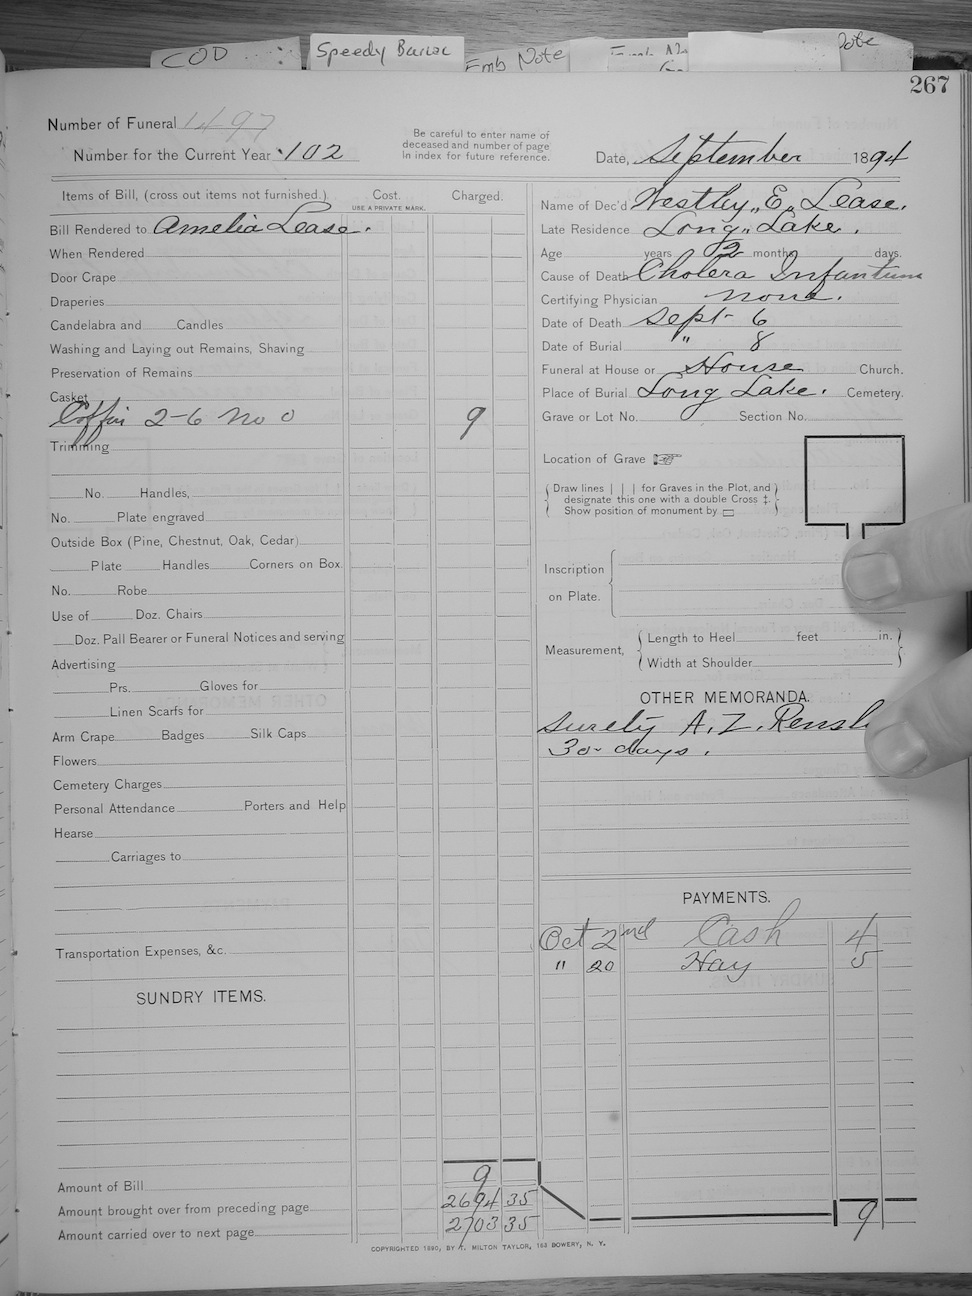 COD
Speedy Burial
Emb Note
267
Number of Funeral 1497
Number for the Current Year 102
Be careful to enter name of
deceased and number of page
in index for future reference.
Date, September 1894
Items of Bill, (cross out items not furnished.)
Cost.
USE A PRIVATE MARK.
Charged.
Bill Rendered to Amelia Lease.
When Rendered
Door Crape
Draperies
Candelabra and Candles
Washing and Laying out Remains, Shaving
Preservation of Remains
Casket
Coffin 2-6 No 0 9
Trimming
No. Handles,
No. Plate engraved
Outside Box (Pine, Chestnut, Oak, Cedar)
Plate Handles Corners on Box.
No. Robe
Use of Doz. Chairs
Doz. Pall Bearer or Funeral Notices and serving
Advertising
Prs. Gloves for
Linen Scarfs for
Arm Crape Badges Silk Caps
Flowers
Cemetery Charges
Personal Attendance Porters and Help
Hearse
Carriages to
Transportation Expenses, &c.
SUNDRY ITEMS.
Amount of Bill 9
Amount brought over from preceding page 2694 35
Amount carried over to next page 2703 35
Name of Dec'd Westley „ E „ Lease.
Late Residence Long „ Lake.
Age years 2 months days.
Cause of Death Cholera Infantum
Certifying Physician none.
Date of Death Sept- 6
Date of Burial " 8
Funeral at House or House Church.
Place of Burial Long Lake. Cemetery.
Grave or Lot No. Section No.
Location of Grave
Draw lines | | | for Graves in the Plot, and
designate this one with a double Cross ‡.
Show position of monument by ▭
Inscription
on Plate.
Measurement,
Length to Heel feet in.
Width at Shoulder
OTHER MEMORANDA.
Surety A. Z.
30- days.
PAYMENTS.
Oct 2nd Cash 4
" 20 Hay 5
9
COPYRIGHTED 1890, BY T. MILTON TAYLOR, 163 BOWERY, N. Y.